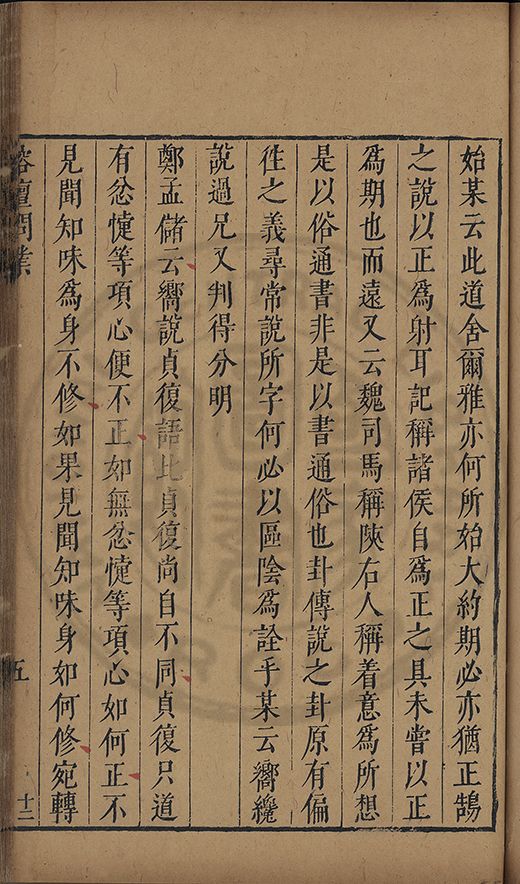 始某云此道舍爾雅亦何所始大約期必亦猶正鵠
之說以正為射耳記稱諸侯自為正之具未嘗以正
為期也而遠又云魏司馬稱陝右人稱着意為所想
是以俗通書非是以書通俗也卦傳說之卦原有偏
徃之義尋常說所字何必以區陰為詮乎某云嚮纔
說過兄又判得分明
鄭孟儲云嚮說貞復語此貞復尚自不同貞復只道
有忿懥等項心便不正如無忿懥等項心如何正不
見聞知味為身不修如果見聞知味身如何修宛轉
榕壇問業
五
十二